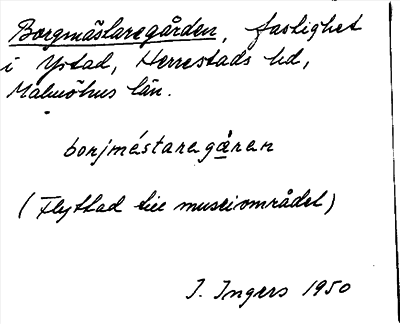 Borgmästaregården, fastighet
i Ystad, Herrestads hd,
Malmöhus län.
borjméstaregåren
(Flyttad till museiområdet)
I. Ingers 1950